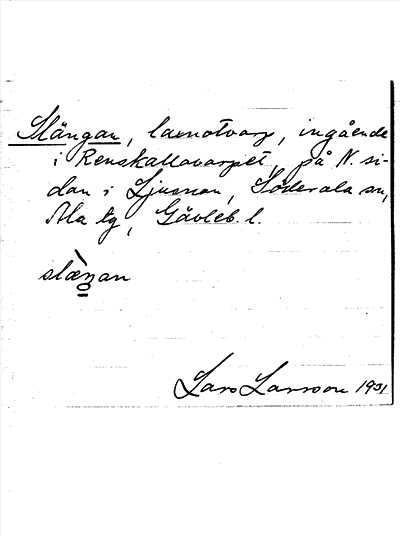 Slängan, laxnotvarp, ingående
i Renskallavarpet, på N. si-
dan i Ljusnan, Söderala sn,
Ala tg, Gävleb. l.
slæ̀ŋan
Lars Larsson 1931